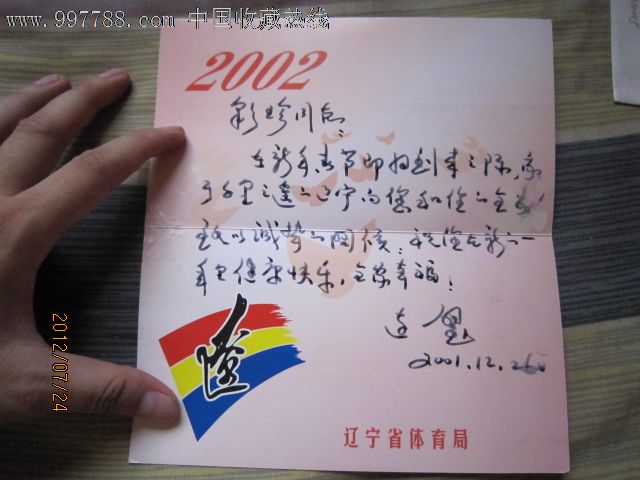 www.997788.com 中国收藏热线
2002
彩珍同志:
在新年春节即将到来之际,
千里之遥的辽宁向您和您的全家
致以诚挚的问候;祝您在新的一
年里健康快乐,全家幸福!
2001.12.
辽宁省体育局
2012/07/24